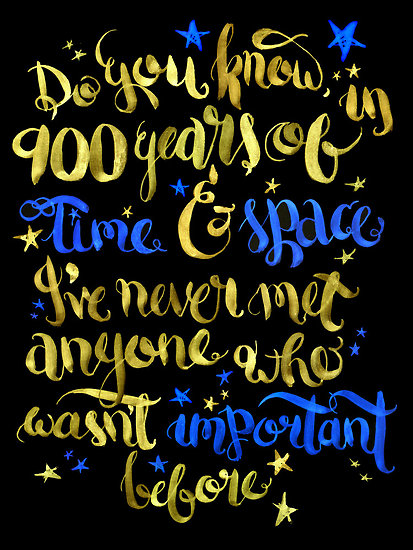 Do you know, in
900 years of
Time & space
I've never met
anyone who
wasn't important
before